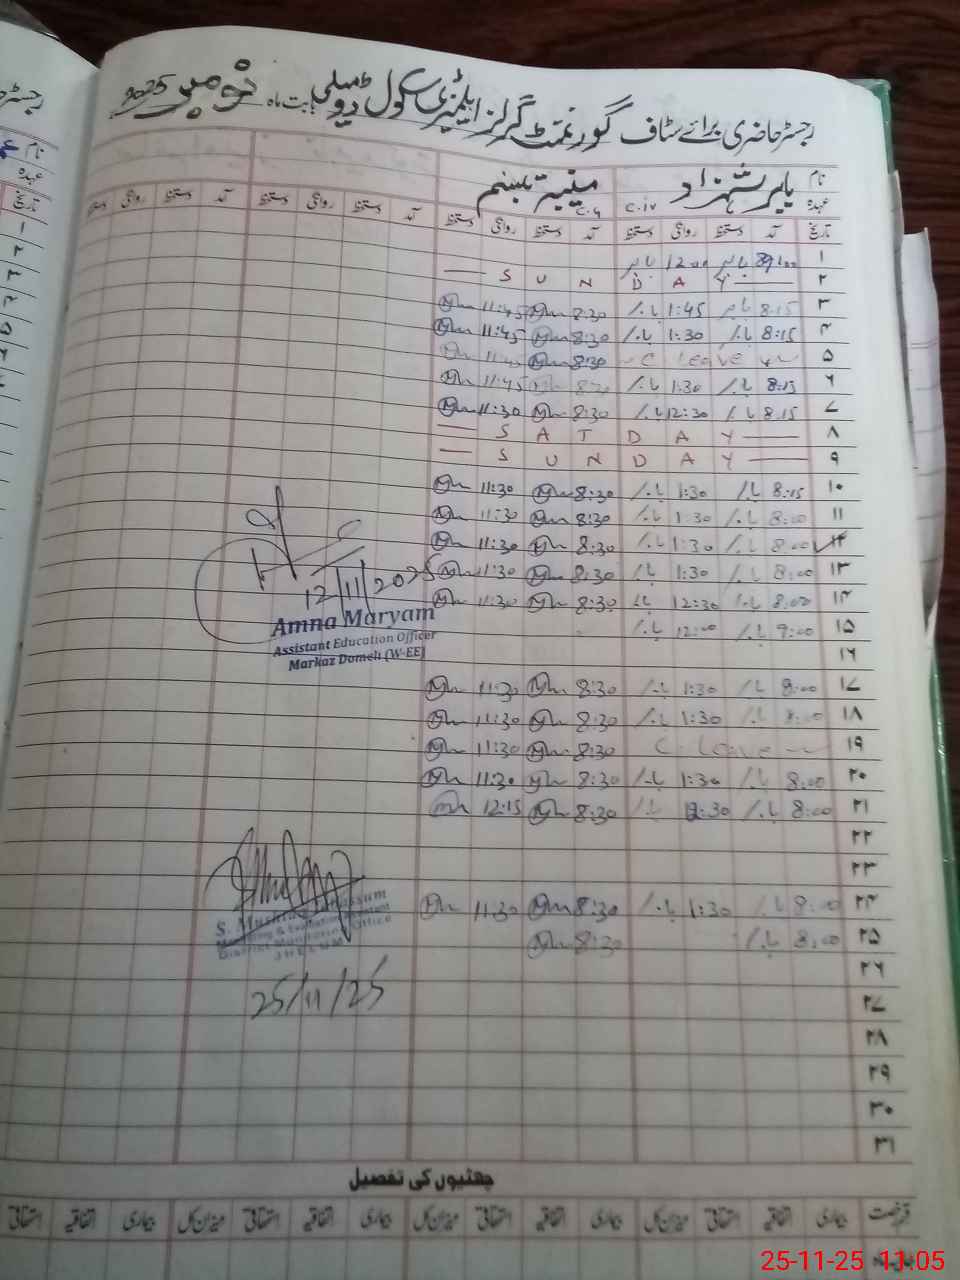 رجسٹر حاضری برائے سٹاف گورنمنٹ گرلز ایلیمنٹری سکول ڈومیلی بابت ماہ نومبر 2025
نام یاسر شہزاد
عہدہ C.iv C.4
تاریخ آمد دستخط روانگی دستخط آمد دستخط روانگی دستخط آمد دستخط روانگی دستخط آمد دستخط روانگی دستخط
۱ 12:00
۲ Y A D N U S
۳ 8.15 1:45 8:30 11:45
۴ 8:15 1:30 8:30 11:45
۵ C leave 8:30 11:45
۶ 8:15 1:30 8:30 11:45
۷ 8.15 12:30 8:30 11:30
۸ Y A D T A S
۹ Y A D N U S
۱۰ 8:15 1:30 8:30 11:30
۱۱ 8:00 1:30 8:30 11:30
۱۲ 8:00 1:30 8:30 11:30
۱۳ 8:00 1:30 8:30 11:30
۱۴ 8:00 12:30 8:30 11:30
۱۵ 9:00 12:00
۱۶
۱۷ 8:00 1:30 8:30 11:30
۱۸ 8:00 1:30 8:30 11:30
۱۹ C leave 8:30 11:30
۲۰ 8:00 1:30 8:30 11:30
۲۱ 8:00 12:30 8:30 12:15
۲۲
۲۳
۲۴ 8:00 1:30 8:30 11:30
۲۵ 8:00 8:30
۲۶
۲۷
۲۸
۲۹
۳۰
۳۱
12/11/2025
Amna Maryam
Assistant Education Officer
Markaz Domeli (W-EE)
Monitoring & Evaluation Assistant
District Monitoring Office
JHELUM
25/11/25
چھٹیوں کی تفصیل
قسم رخصت بیماری اتفاقیہ استحقاقی میزان کل بیماری اتفاقیہ استحقاقی میزان کل بیماری اتفاقیہ استحقاقی میزان کل بیماری اتفاقیہ استحقاقی
25-11-25 11:05